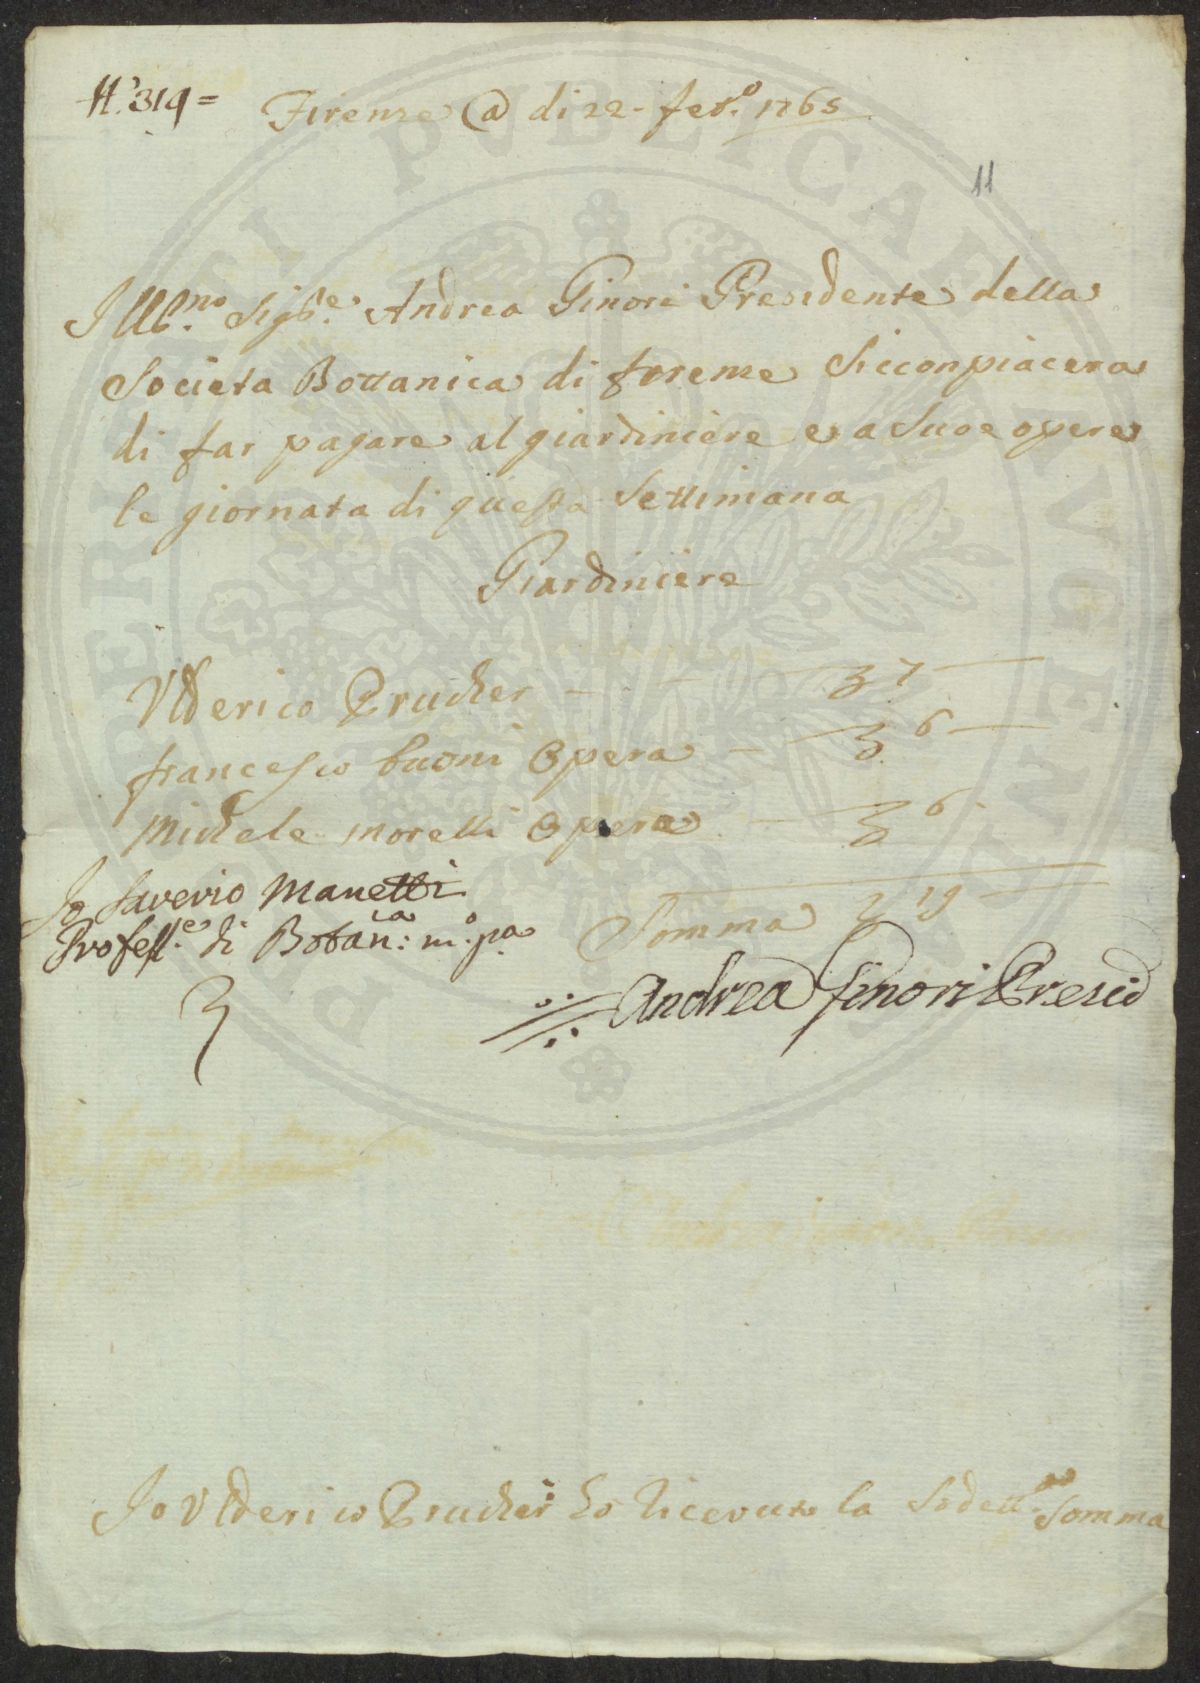 N.° 319 =
Firenze @ di 22 - feb.° 1765
11
Ill.mo Sig.re Andrea Ginori Presidente della
Societa Bottanica di firenze Siccompiacera
di far pagare al giardiniere e a Suoe opere
le giornata di questa Settimana
Giardiniere
Ulderico Prucher - - - 7 -
francesco buoni Opera - 6 -
Michele morelli Opera - 6 -
Io Saverio Manetti
Profess.e di Botan.ca m.o pa
Somma 19 -
Andrea Ginori Presid
Io Ulderico Prucher ho Ricevuto la Sodett.a Somma